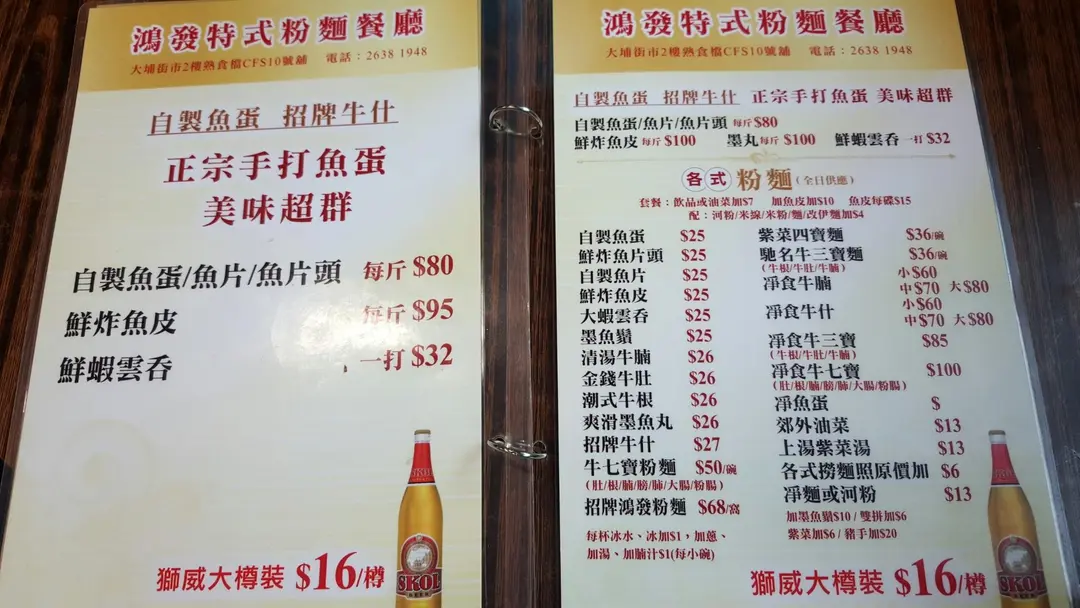 鴻發特式粉麵餐廳
大埔街市2樓熟食檔CFS10號舖 電話：2638 1948
自製魚蛋 招牌牛什
正宗手打魚蛋
美味超群
自製魚蛋/魚片/魚片頭 每斤 $80
鮮炸魚皮 每斤 $95
鮮蝦雲吞 一打 $32
獅威大樽裝 $16/樽
SKOL
鴻發特式粉麵餐廳
大埔街市2樓熟食檔CFS10號舖 電話：2638 1948
自製魚蛋 招牌牛什 正宗手打魚蛋 美味超群
自製魚蛋/魚片/魚片頭 每斤 $80
鮮炸魚皮 每斤 $100 墨丸 每斤 $100 鮮蝦雲吞 一打 $32
各式 粉麵 (全日供應)
套餐：飲品或油菜加$7 加魚皮加$10 魚皮每碟$15
配：河粉/米線/米粉/麵/改伊麵加$4
自製魚蛋 $25
鮮炸魚片頭 $25
自製魚片 $25
鮮炸魚皮 $25
大蝦雲吞 $25
墨魚鬚 $25
清湯牛腩 $26
金錢牛肚 $26
潮式牛根 $26
爽滑墨魚丸 $26
招牌牛什 $27
牛七寶粉麵 $50/碗
(肚/根/腩/膀/肺/大腸/粉腸)
招牌鴻發粉麵 $68/窩
每杯冰水、冰加$1，加蔥、
加湯、加腩汁$1(每小碗)
紫菜四寶麵 $36/碗
馳名牛三寶麵 $36/碗
(牛根/牛肚/牛腩)
淨食牛腩 小$60
中$70 大$80
淨食牛什 小$60
中$70 大$80
淨食牛三寶 $85
(牛根/牛肚/牛腩)
淨食牛七寶 $100
(肚/根/腩/膀/肺/大腸/粉腸)
淨魚蛋 $
郊外油菜 $13
上湯紫菜湯 $13
各式撈麵照原價加 $6
淨麵或河粉 $13
加墨魚鬚$10 / 雙拼加$6
紫菜加$6 / 豬手加$20
獅威大樽裝 $16/樽
SKOL